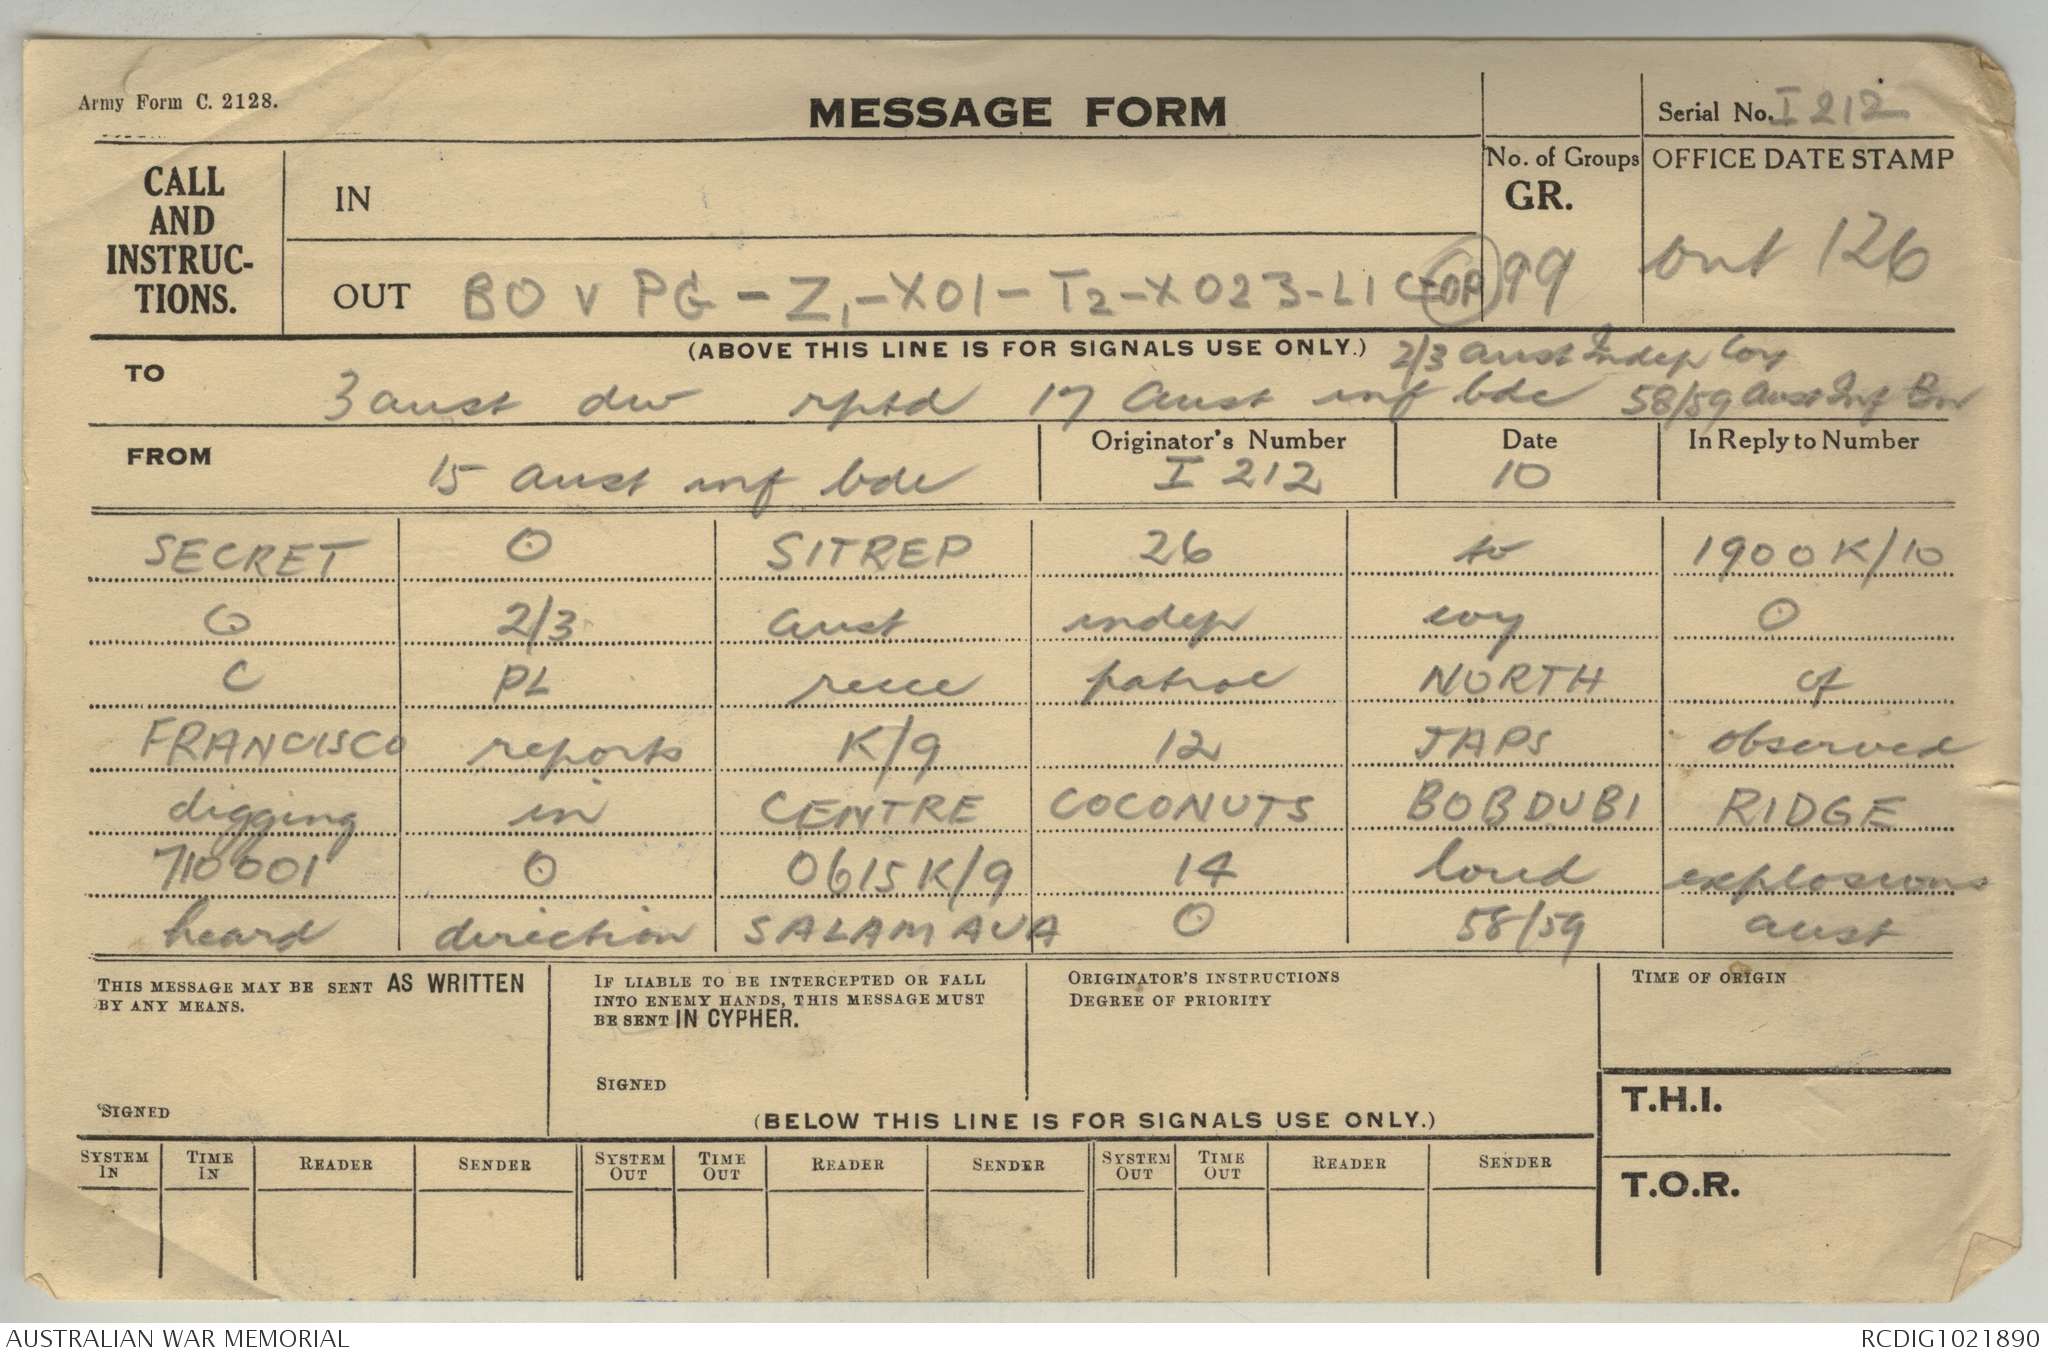 Army Form C. 2128.
MESSAGE FORM
Serial No. I 212
CALL AND INSTRUCTIONS.
IN
No. of Groups GR. 99
OFFICE DATE STAMP
out 126
OUT BO v PG - Z1 - X01 - T2 - X023 - L1 C
(ABOVE THIS LINE IS FOR SIGNALS USE ONLY.)
2/3 Aust Indep Coy
TO 3 aust div rptd 17 Aust inf bde 58/59 Aust Inf Bn
FROM 15 aust inf bde
Originator's Number I 212
Date 10
In Reply to Number
SECRET O SITREP 26 to 1900K/10
O 2/3 aust indep coy O
C PL recce patrol NORTH of
FRANCISCO reports K/9 12 JAPS observed
digging in CENTRE COCONUTS BOBDUBI RIDGE
710001 O 0615K/9 14 loud explosions
heard direction SALAMAUA O 58/59 aust
THIS MESSAGE MAY BE SENT AS WRITTEN
BY ANY MEANS.
SIGNED
IF LIABLE TO BE INTERCEPTED OR FALL
INTO ENEMY HANDS, THIS MESSAGE MUST
BE SENT IN CYPHER.
SIGNED
ORIGINATOR'S INSTRUCTIONS
DEGREE OF PRIORITY
TIME OF ORIGIN
T.H.I.
(BELOW THIS LINE IS FOR SIGNALS USE ONLY.)
SYSTEM IN TIME IN READER SENDER SYSTEM OUT TIME OUT READER SENDER SYSTEM OUT TIME OUT READER SENDER
T.O.R.
AUSTRALIAN WAR MEMORIAL
RCDIG1021890